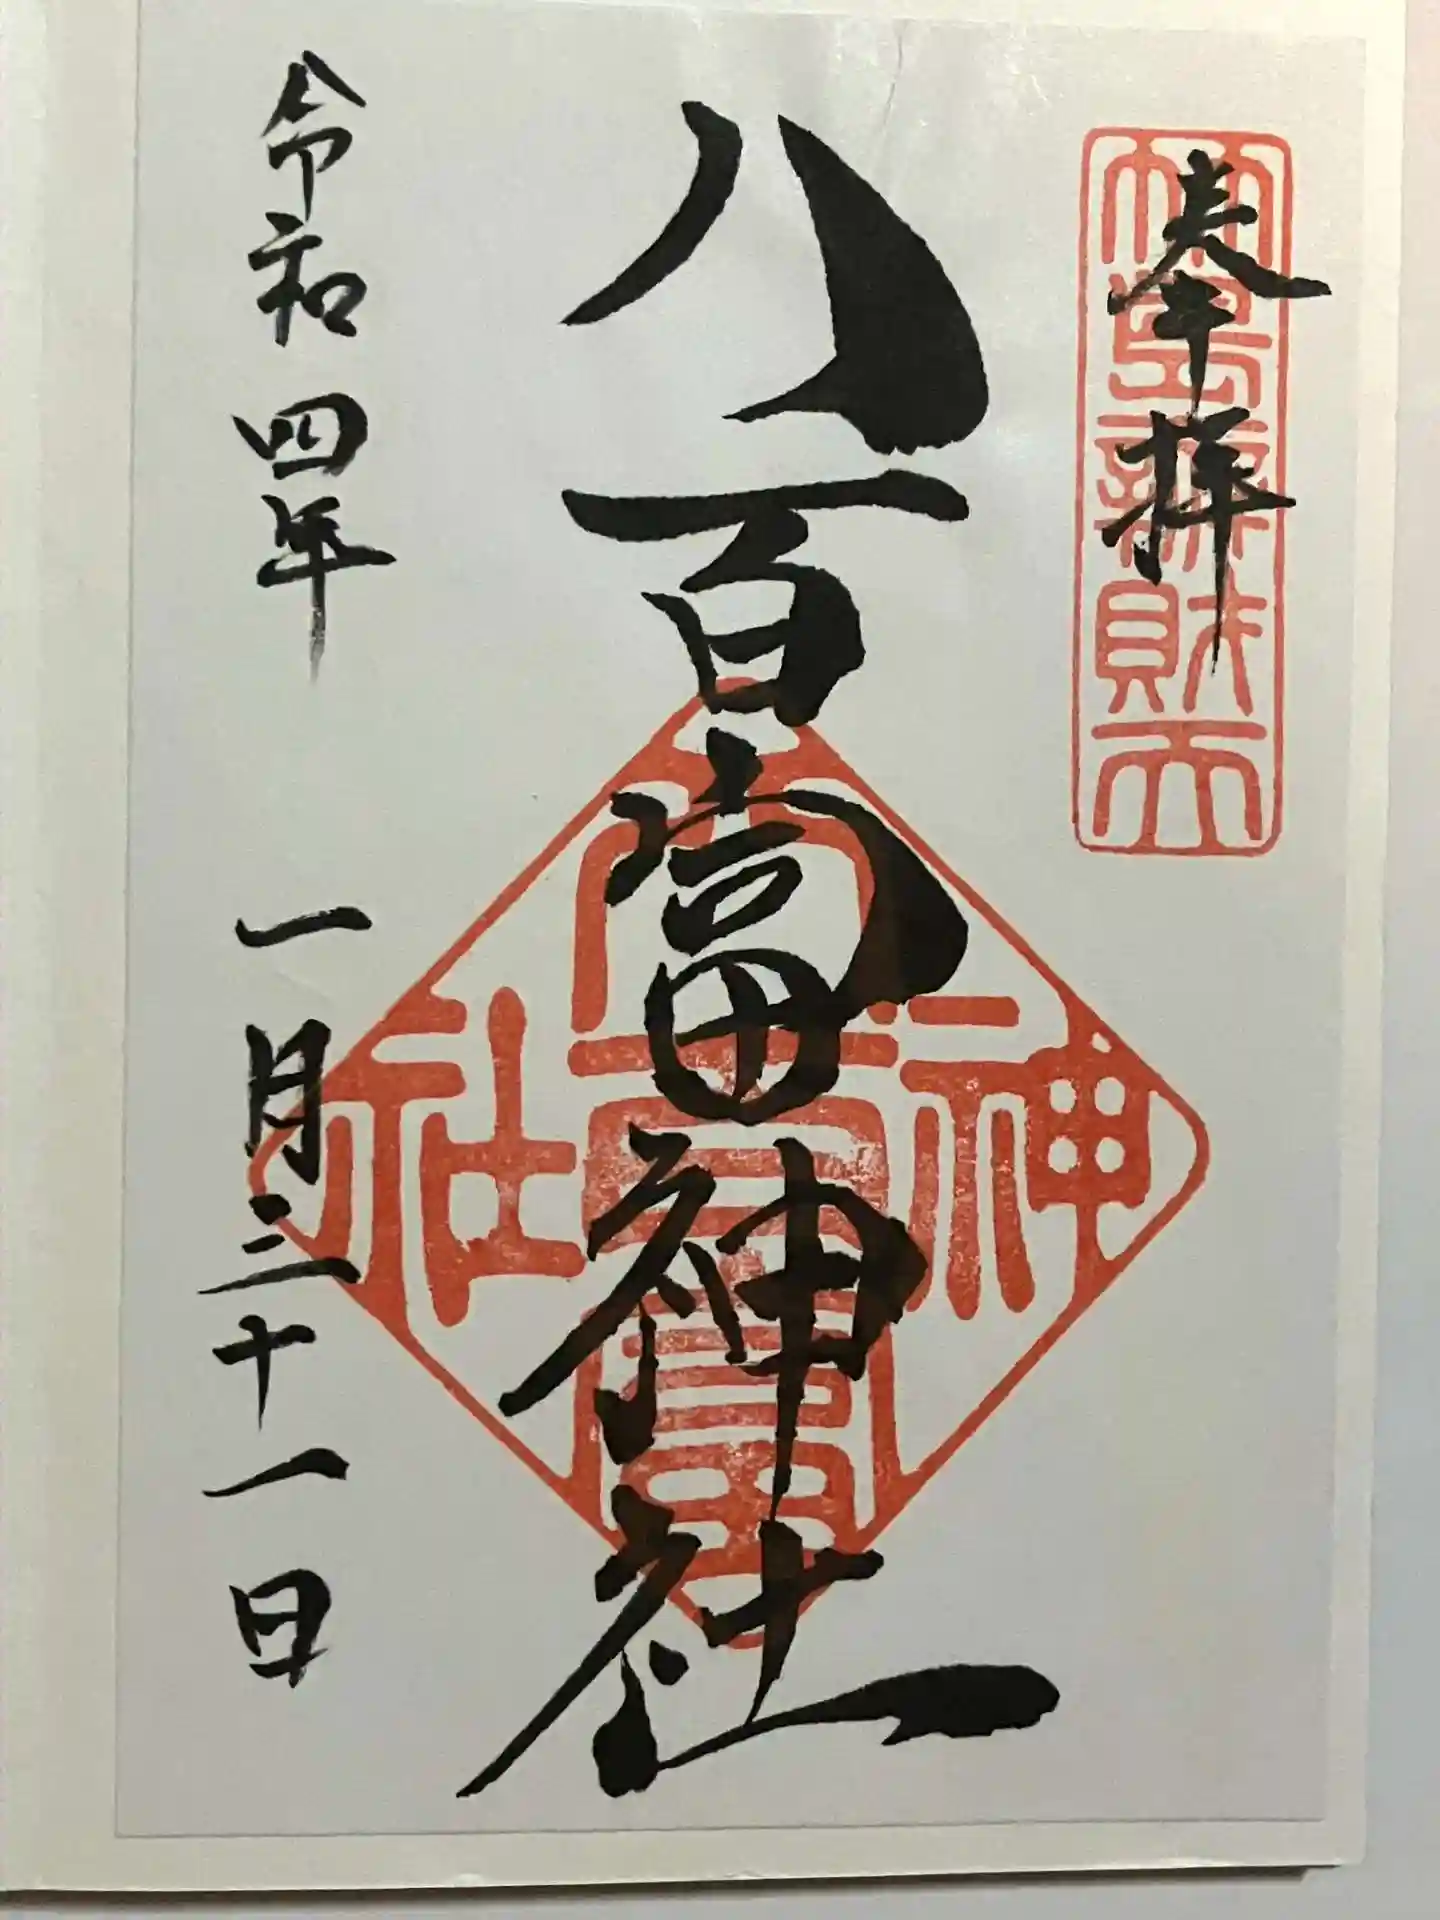 奉拝
竹島辨財天
八百富神社
八百富神社
令和四年 一月三十一日